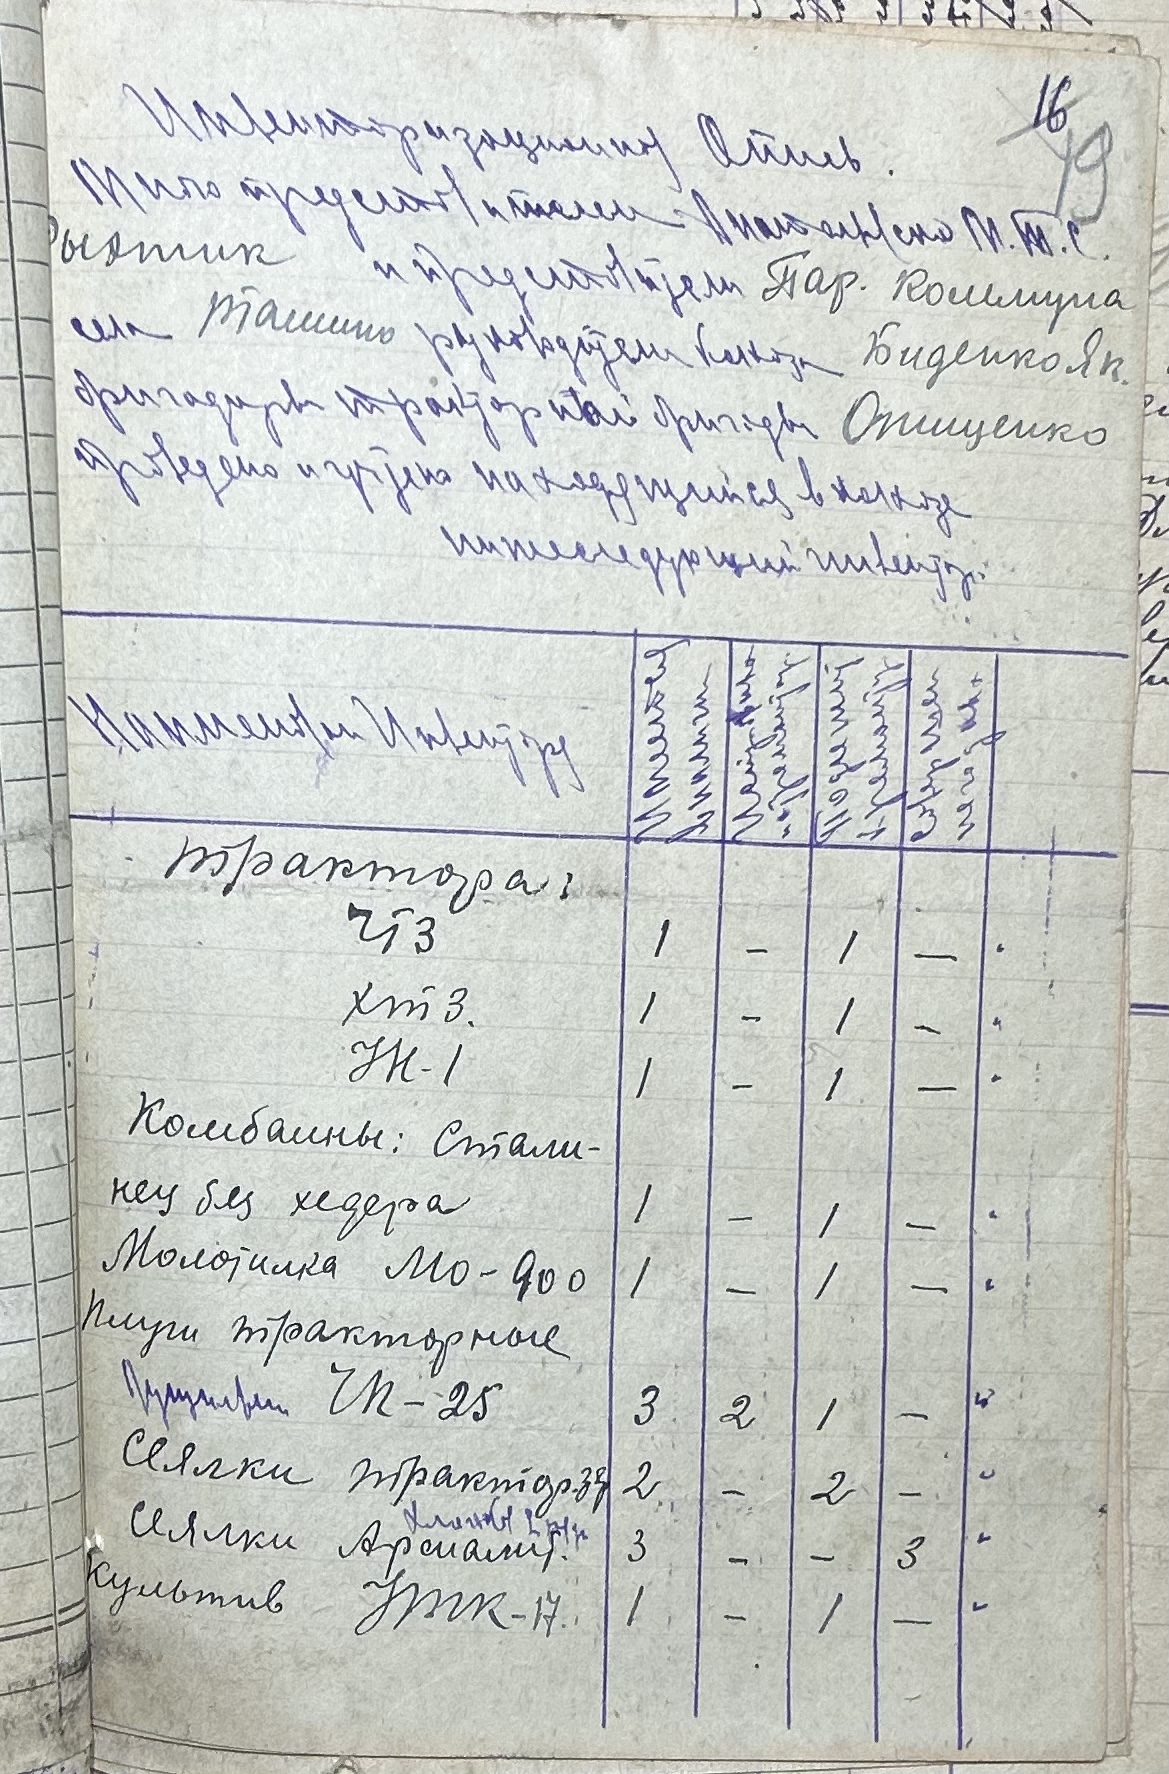 16
19
Инвентаризационная Опись.
Мною представителем М.Т.С.
и представителем Пар. Коммуна
села Ташино руководителем колхоза Биденко Як.
бригадиром тракторной бригады Онищенко
проведено и учтено находящийся в колхозе
нижеследующий инвентарь:
Наименован Инвентаря
Имеется
в наличии
ремонта
ремонта
Трактора:
ЧТЗ 1 - 1 -
ХТЗ. 1 - 1 -
УН-1 1 - 1 -
Комбаины: Стали-
нец без хедера 1 - 1 -
Молотилка МО-900 1 - 1 -
Плуги тракторные
ЧП-25 3 2 1 -
Сеялки трактор. 2 - 2 -
Сеялки 3 - - 3
Культив УТК-17. 1 - 1 -